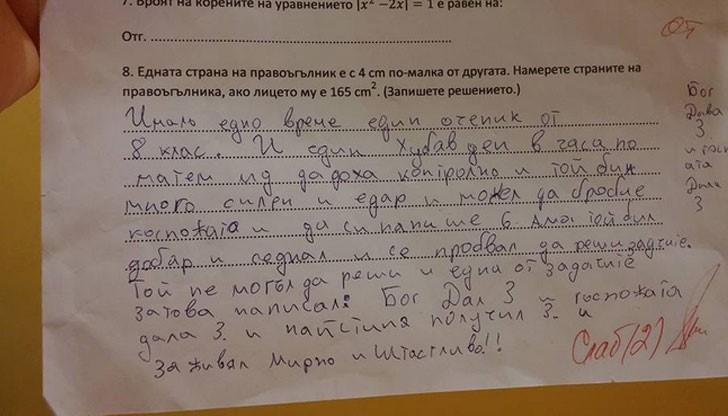 7. Броят на корените на уравнението |x² −2x| = 1 е равен на:
Отг. ............................................................
8. Едната страна на правоъгълник е с 4 cm по-малка от другата. Намерете страните на
правоъгълника, ако лицето му е 165 cm². (Запишете решението.)
Имало едно време един оченик от
8 клас. И един Хубав ден в часа по
матем да доха контролно и той бил
много силен и едар и можел да
госпожата и да си напише 6. Ама той бил
добар и седнал и се пробвал да реши задчиIе.
Той не могъл да реши и една от задачиIе
затова написал: Бог Дал 3 и госпожата
дала 3. и наистина получил 3. и
Заживял Мирно и Штастливо!!
От
Бог
Дава
3
и госп
ата
Дала
3
Слаб (2)